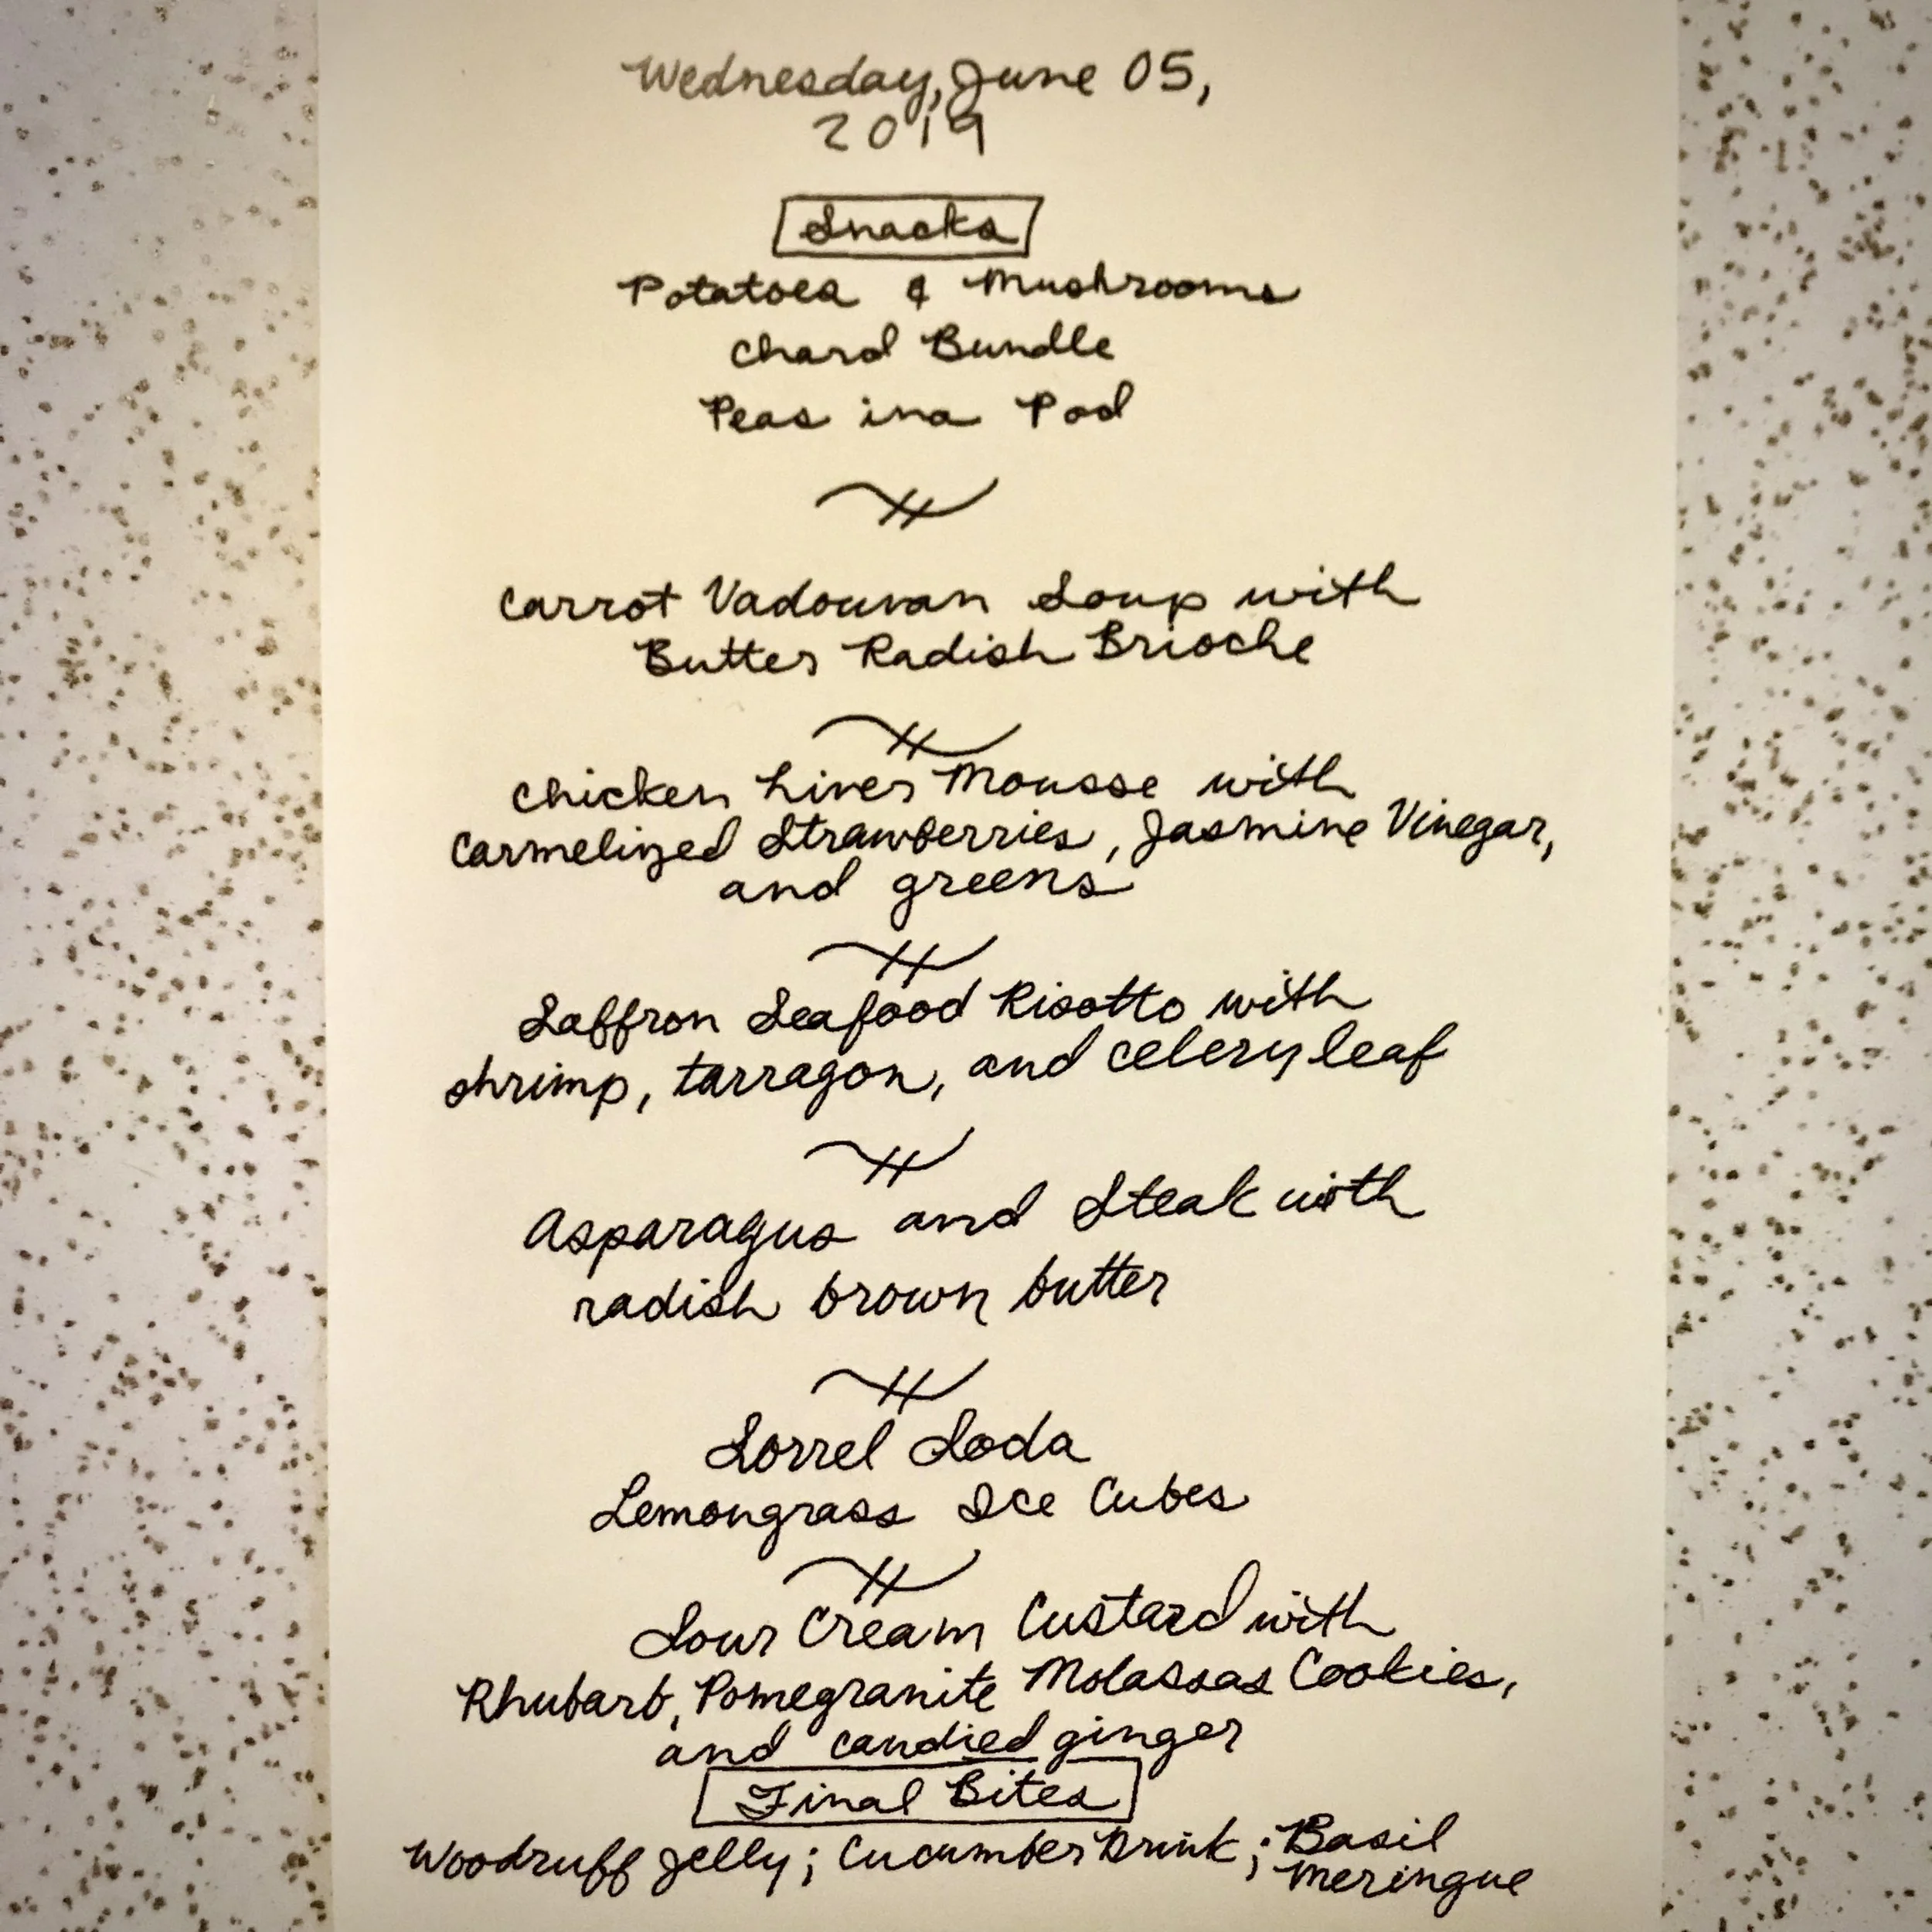 Wednesday, June 05,
2019
Snacks
Potatoes & Mushrooms
Chard Bundle
Peas in a Pod
Carrot Vadouvan Soup with
Butter Radish Brioche
Chicken Liver Mousse with
Carmelized Strawberries, Jasmine Vinegar,
and greens
Saffron Seafood Risotto with
shrimp, tarragon, and celery leaf
Asparagus and Steak with
radish brown butter
Sorrel Soda
Lemongrass Ice Cubes
Sour Cream Custard with
Rhubarb, Pomegranite Molassas Cookies,
and candied ginger
Final Bites
Woodruff Jelly; Cucumber Drink; Basil
Meringue